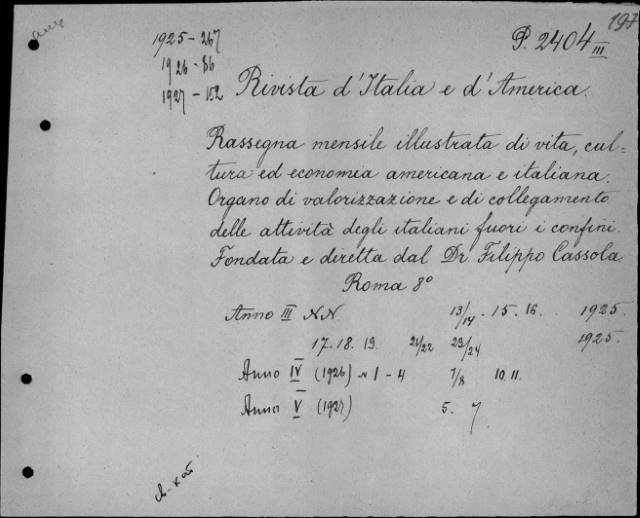 197
1925-267
P. 2404 III
1926-86
1927-152
Rivista d'Italia e d'America.
Rassegna mensile illustrata di vita, cul=
tura ed economia americana e italiana.
Organo di valorizzazione e di collegamento
delle attività degli italiani fuori i confini.
Fondata e diretta dal Dr. Filippo Cassola.
Roma 8°
Anno III NN 13/14. 15. 16. 1925.
17. 18. 19. 21/22 23/24 1925.
Anno IV (1926) N 1-4 7/8 10. 11.
Anno V (1927) 5. 7